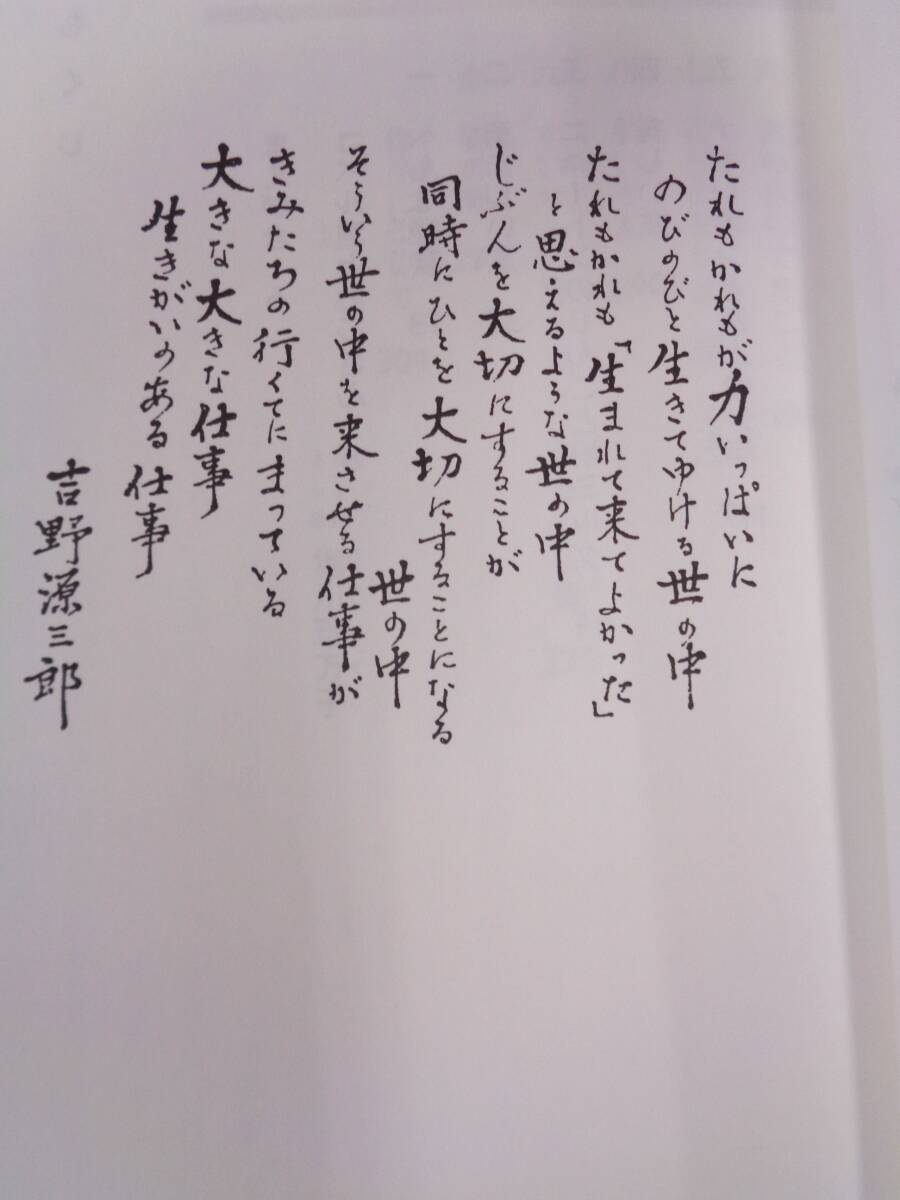 たれもかれもが力いっぱいに
のびのびと生きてゆける世の中
たれもかれも「生まれて来てよかった」
と思えるような世の中
じぶんを大切にすることが
同時にひとを大切にすることになる
世の中
そういう世の中を来させる仕事が
きみたちの行くてにまっている
大きな大きな仕事
生きがいのある仕事
吉野源三郎
もくじ